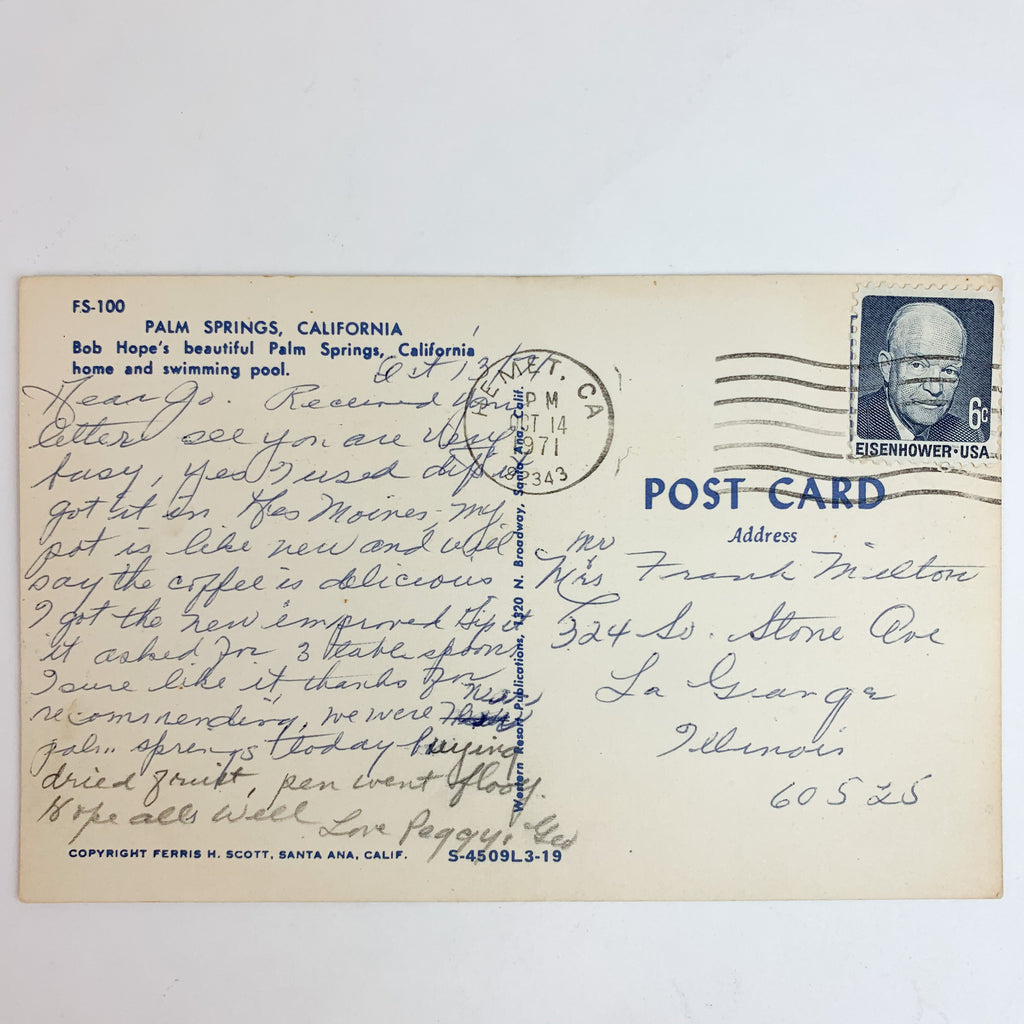 FS-100
PALM SPRINGS, CALIFORNIA
Bob Hope's beautiful Palm Springs, California
home and swimming pool.
Oct 13
Dear Jo. Received your
letter see you are very
busy, yes I used dip it
got it in Des Moines, my
pot is like new and will
say the coffee is delicious
I got the new improved Dip it
it asked for 3 table spoons
I sure like it, thanks for
recommending, we were near
palm springs today buying
dried fruit, pen went flooy.
Hope alls well
Love Peggy, Geo
COPYRIGHT FERRIS H. SCOTT, SANTA ANA, CALIF.
S-4509L3-19
Western Resort Publications, 1320 N. Broadway, Santa Ana, Calif.
HEMET, CA
PM
OCT 14
1971
92343
6c
EISENHOWER·USA
POST CARD
Address
Mr
&
Mrs Frank Milton
324 So. Stone Ave
La Grange
Illinois
60525